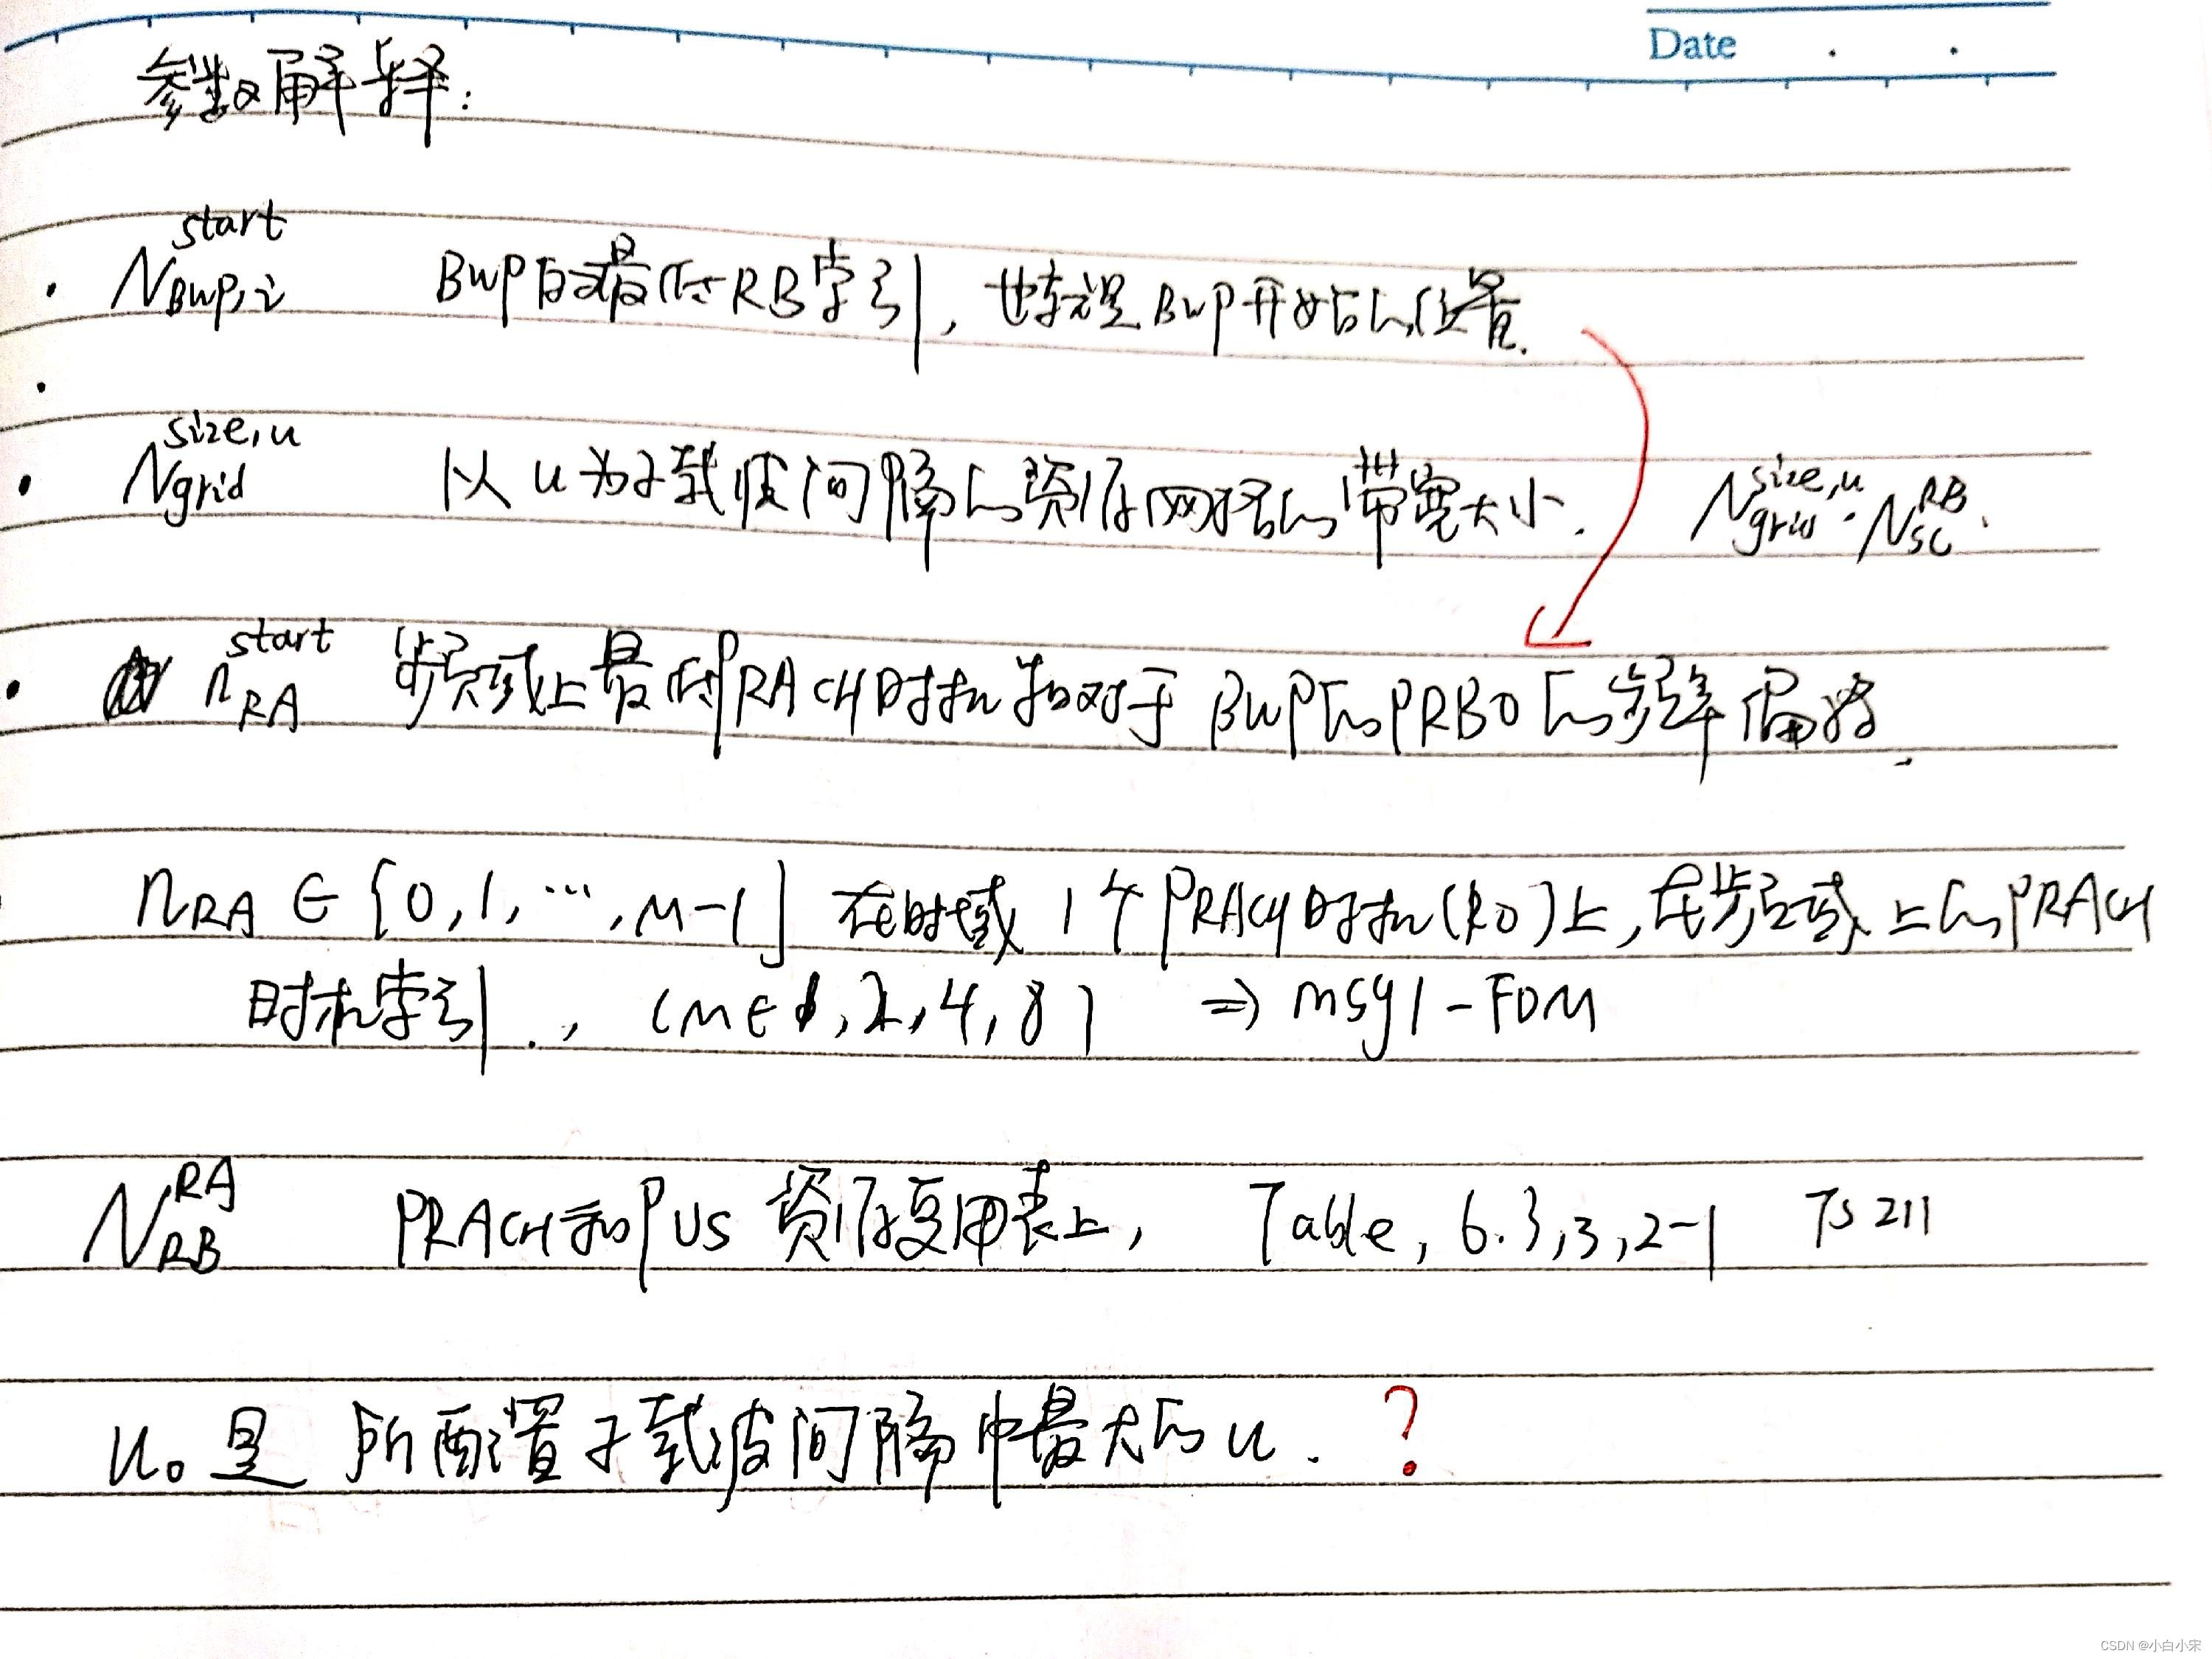 Date . .
参数解释:
· N_{BWP,i}^{start} BWP的最低RB索引, 也就是BWP开始的位置.
·
· N_{grid}^{size,u} 以u为子载波间隔的资源网格的带宽大小. N_{grid}^{size,u} · N_{sc}^{RB}.
· n_{RA}^{start} 频域上最低PRACH时机相对于BWP的PRB0的频率偏移.
n_{RA} ∈ {0,1,…,M-1} 在时域1个PRACH时机(RO)上,在频域上的PRACH
时机索引., (M∈1,2,4,8) ⇒ msg1-FDM
N_{RB}^{RA} PRACH和PUS资源复用表上, Table, 6.3,3,2-1 TS 211
u_0是 所配置子载波间隔中最大的u. ?
CSDN @小白小宋